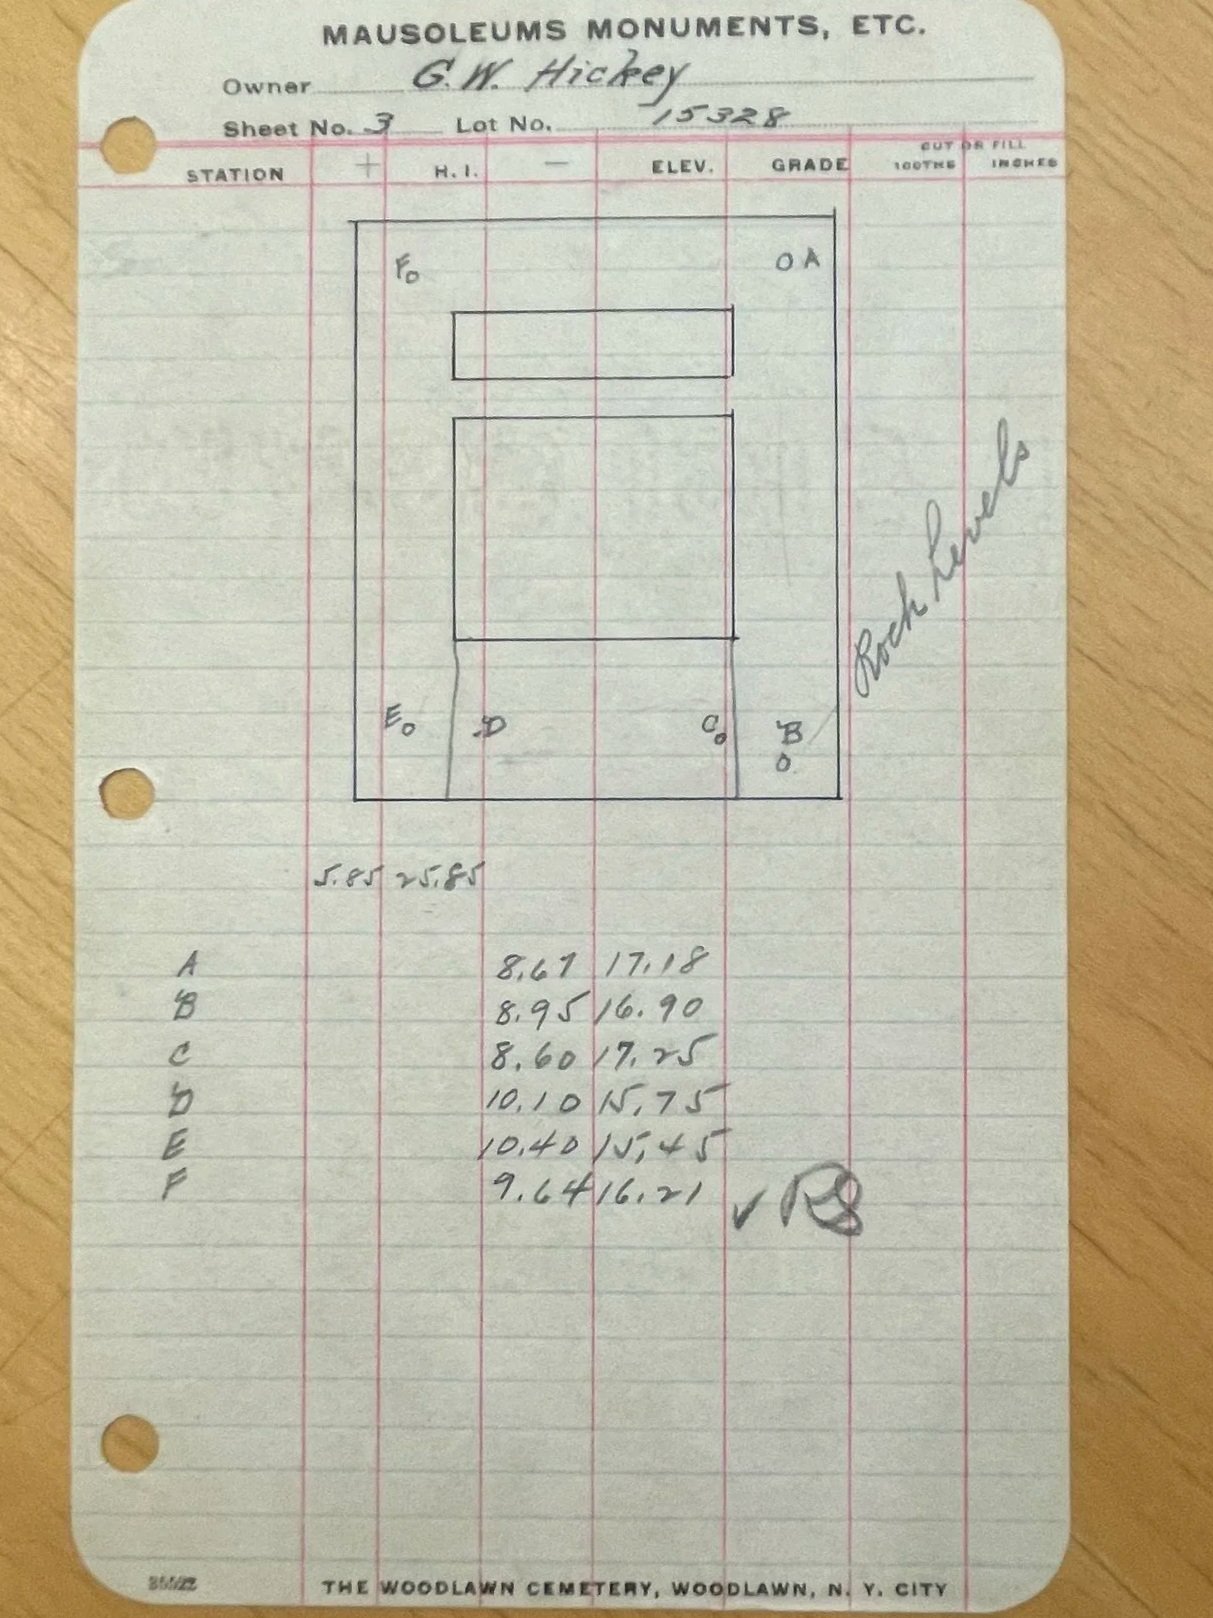 MAUSOLEUMS MONUMENTS, ETC.
Owner G. W. Hickey
Sheet No. 3 Lot No. 15328
CUT OR FILL
STATION + H. I. — ELEV. GRADE 100THS INCHES
F A
Rock Levels
E D C B
5.85 25.85
A 8.67 17.18
B 8.95 16.90
C 8.60 17.25
D 10.10 15.75
E 10.40 15.45
F 9.64 16.21 ✓
THE WOODLAWN CEMETERY, WOODLAWN, N. Y. CITY